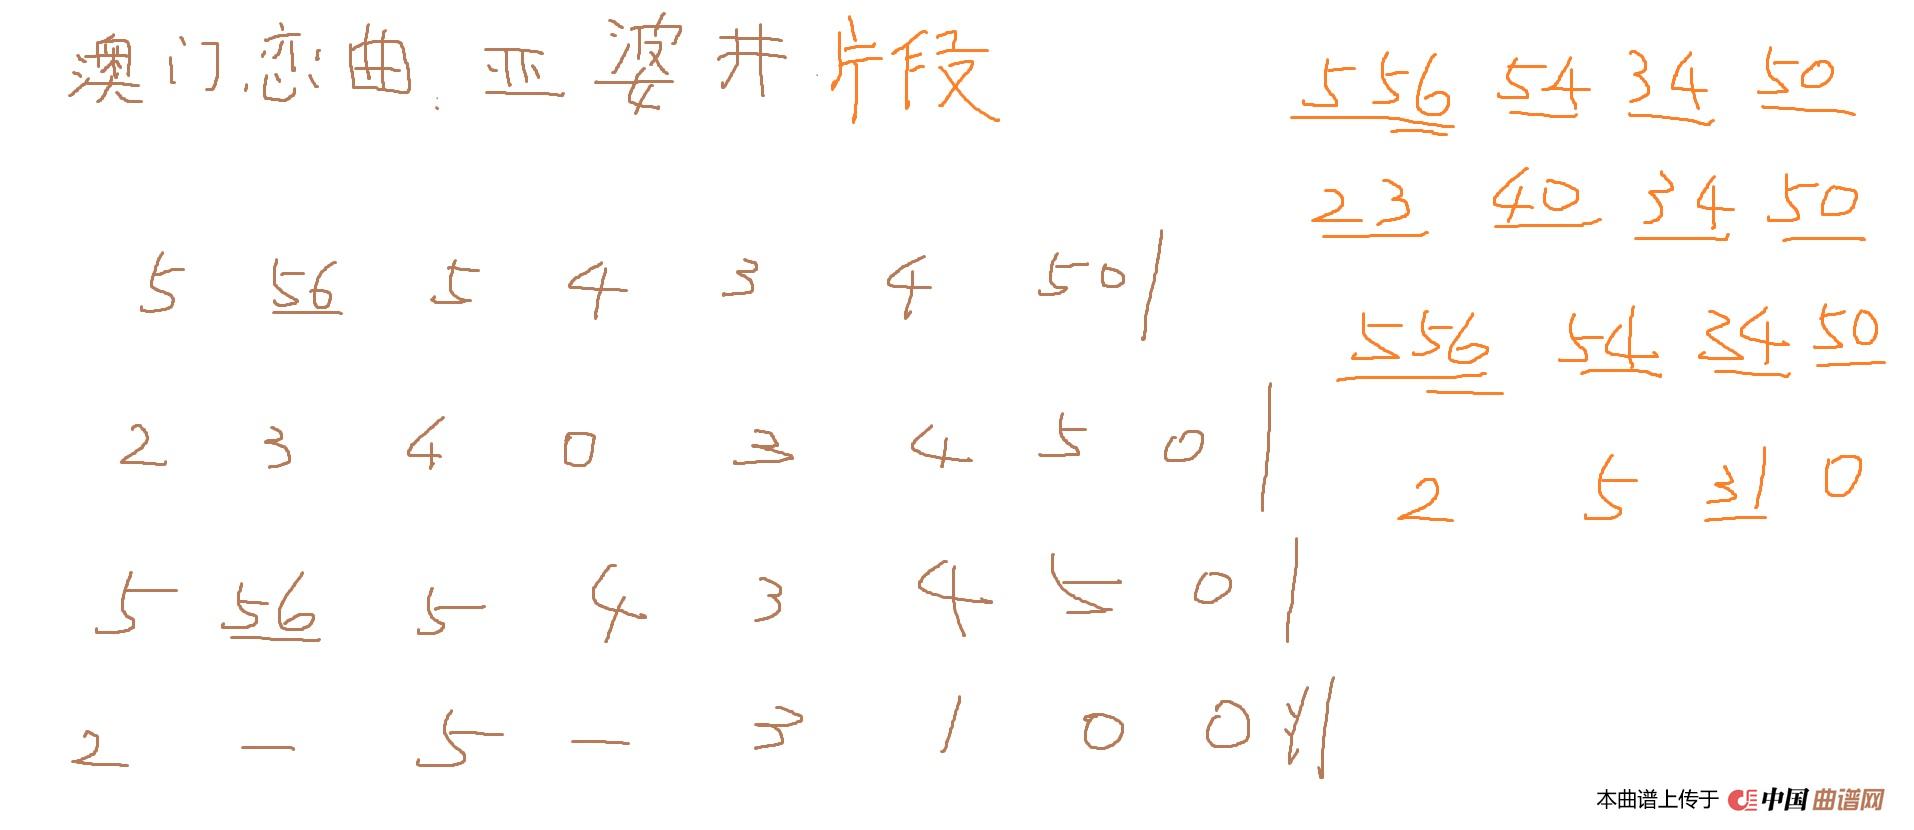 澳门恋曲.亚婆井片段
5 56 5 4 3 4 50|
2 3 4 0 3 4 5 0|
5 56 5 4 3 4 5 0|
2 — 5 — 3 1 0 0||
556 54 34 50
23 40 34 50
556 54 34 50
2 5 31 0
本曲谱上传于 中国曲谱网